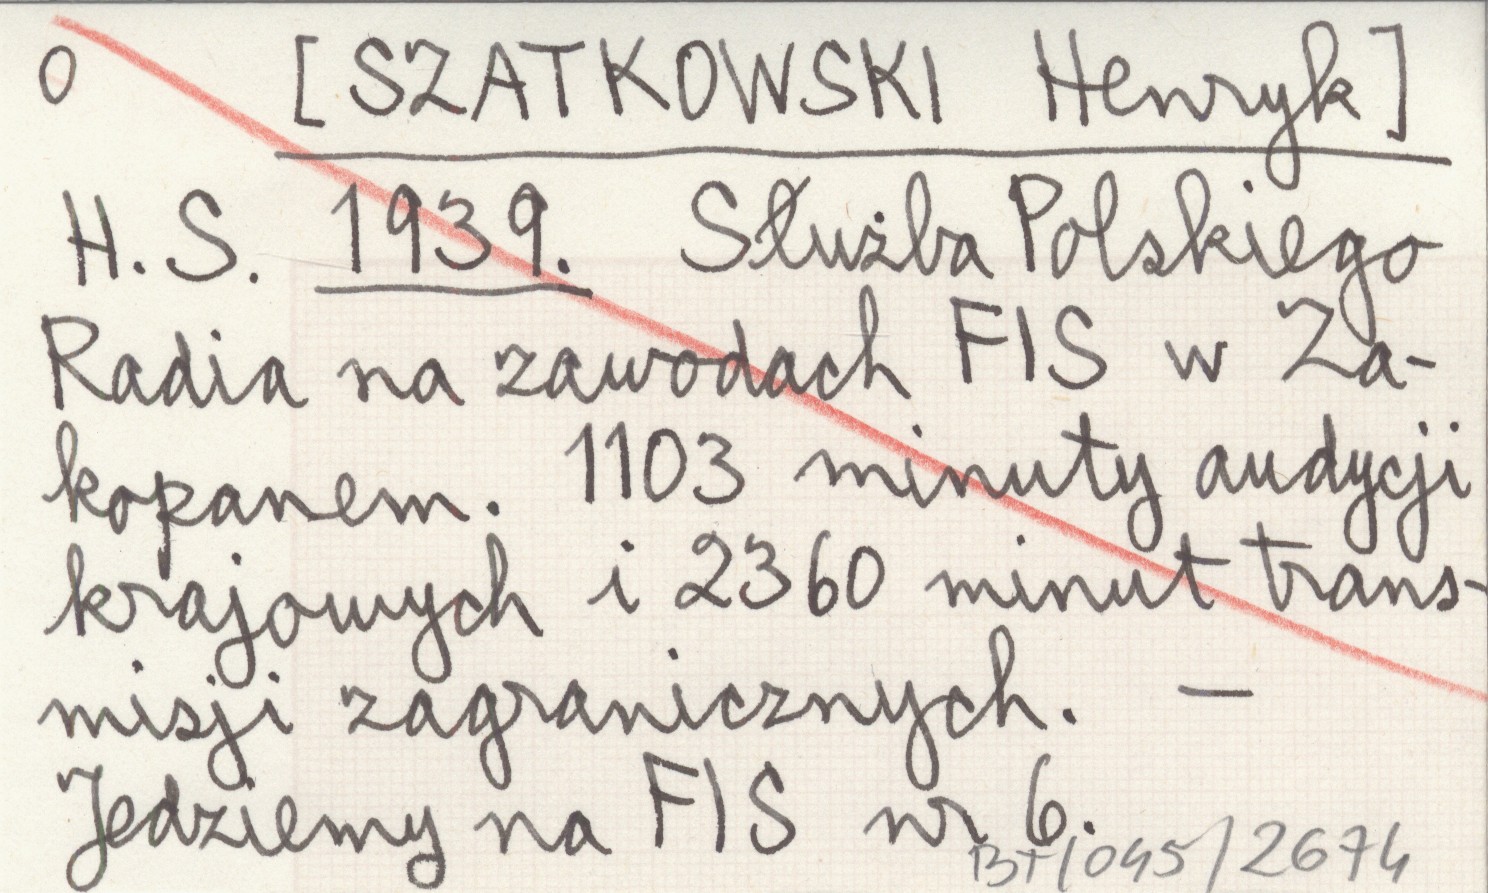 0 [SZATKOWSKI Henryk]
H. S. 1939. Służba Polskiego
Radia na zawodach FIS w Za-
kopanem. 1103 minuty audycji
krajowych i 2360 minut trans-
misji zagranicznych. —
Jedziemy na FIS nr 6.
BT/045/2674